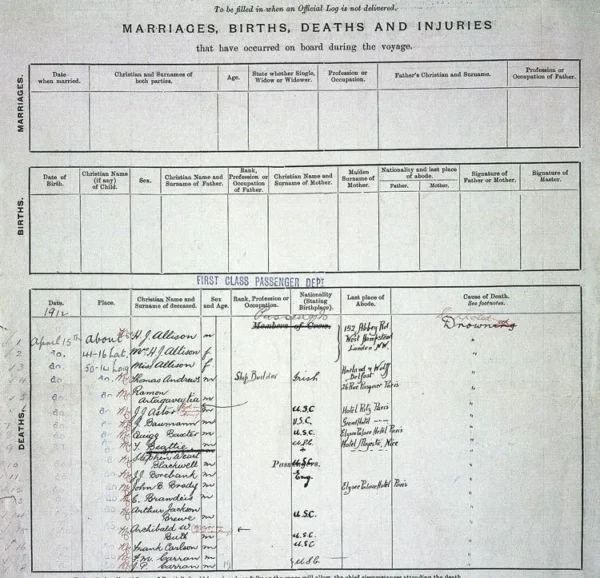 To be filled in when an Official Log is not delivered.
MARRIAGES, BIRTHS, DEATHS AND INJURIES
that have occurred on board during the voyage.
MARRIAGES.
Date when married.
Christian and Surnames of both parties.
Age.
State whether Single, Widow or Widower.
Profession or Occupation.
Father's Christian and Surname.
Profession or Occupation of Father.
BIRTHS.
Date of Birth.
Christian Name (if any) of Child.
Sex.
Christian Name and Surname of Father.
Rank, Profession or Occupation of Father.
Christian Name and Surname of Mother.
Maiden Surname of Mother.
Nationality and last place of abode.
Father. Mother.
Signature of Father or Mother.
Signature of Master.
FIRST CLASS PASSENGER DEPT
DEATHS.
Date.
Place.
Christian Name and Surname of deceased.
Sex and Age.
Rank, Profession or Occupation.
Nationality (Stating Birthplace).
Last place of Abode.
Cause of Death. See footnotes.
1912
Passengers
Members of Crew.
Drowning
1 April 15th About H. J. Allison m 152 Abbey Rd
2 do. 41-16 Lat. Mrs H J Allison f West Hampstead London N.W. "
3 do 50-14 Long Miss Allison f "
4 do Thomas Andrews m Ship Builder Irish Harland & Wolff Belfast "
Ramon Artagaveytia m Paris "
J J Astor m U.S.C Hotel Ritz Paris "
J Baumann m U.S.C. "
Quigg Baxter m U.S.C. Elysee Palace Hotel Paris "
T. Beattie m U.S.C. Hotel Majestic, Nice "
Stephen Weart Blackwell m Passengers. "
J J Borebank m Eng. "
John B. Brady m Elysee Palace Hotel Paris "
E. Brandeis m "
Arthur Jackson Brewe m U.S.C. "
Archibald W. Butt m U.S.C. "
Frank Carlson m U.S.C "
F. M. Carran m "
J. P. Carran m U.S.C. "